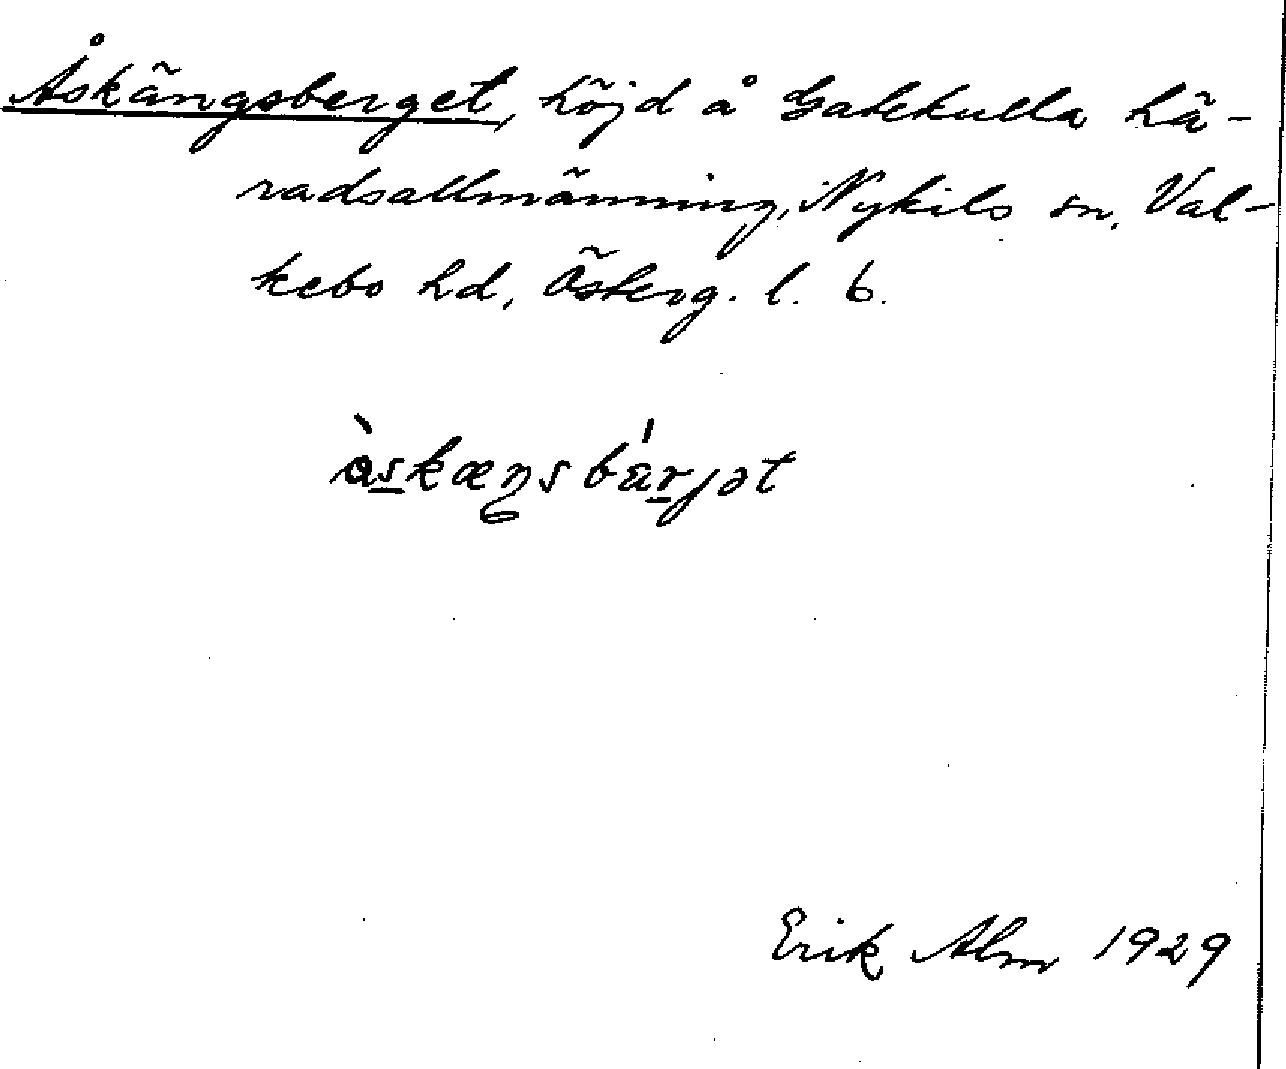 Åskängsberget, höjd å Gatekulla hä-
radsallmänning, Nykils sn, Val-
kebo hd, Österg. l. 6.
òskæŋsbárjət
Erik Alm 1929